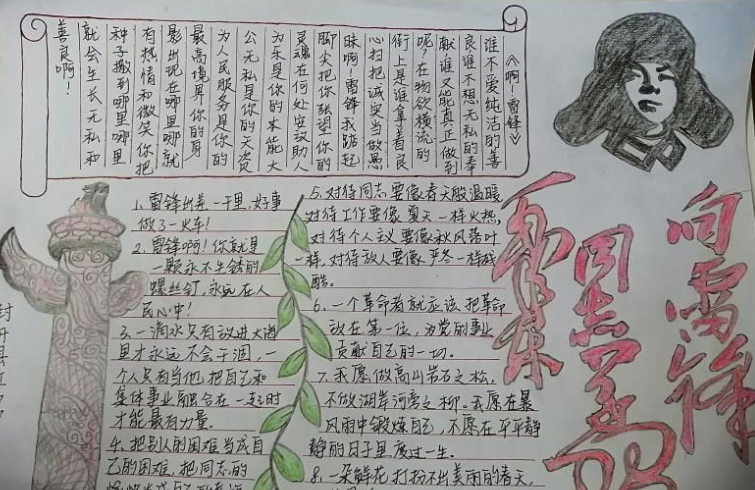 《啊!雷锋》
谁不爱纯洁的善
良谁不想无私的奉
献谁又能真正做到
呢?在物欲横流的
街上是谁拿着良
心扫把诚实当做愚
昧啊!雷锋我踮起
脚尖把你张望你的
灵魂在何处安放助人
为乐是你的本能大
公无私是你的天资
为人民服务是你的
最高境界你的身
影出现在哪里哪就
有热情和微笑你把
种子撒到哪里哪里
就会生长无私和
善良啊!
1、雷锋出差一千里,好事
做了一火车!
2、雷锋啊!你就是
一颗永不生锈的
螺丝钉,永远在人
民心中!
3、一滴水只有放进大海
里才永远不会干涸,一
个人只有当他把自己和
集体事业融合在一起时
才能最有力量。
4、把别人的困难当成自
己的困难,把同志的
5、对待同志要像春天般温暖
对待工作要像夏天一样火热,
对待个人主义要像秋风落叶
一样,对待敌人要像严冬一样残
酷。
6、一个革命者就应该把革命
放在第一位,为党的事业
贡献自己的一切。
7、我愿做高山岩石之松,
不做湖岸河旁之柳。我愿在暴
风雨中锻炼自己,不愿在平平静
静的日子里度过一生。
8、一朵鲜花打扮不出美丽的春天,
向雷锋
同志学习
毛泽东
封开县